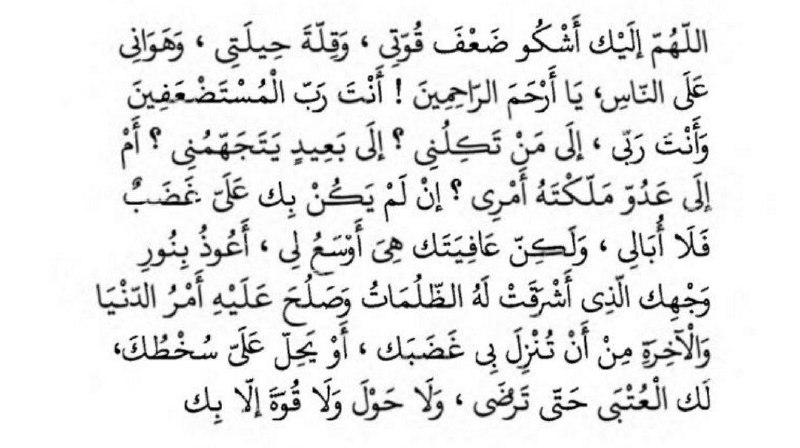 اللّهُمّ إلَيْك أَشْكُو ضَعْفَ قُوّتِي ، وَقِلّةَ حِيلَتِي ، وَهَوَانِى
عَلَى النّاسِ، يَا أَرْحَمَ الرّاحِمِينَ ! أَنْتَ رَبّ الْمُسْتَضْعَفِينَ
وَأَنْتَ رَبّى ، إلَى مَنْ تَكِلُنِى ؟ إلَى بَعِيدٍ يَتَجَهّمُنِى ؟ أَمْ
إلَى عَدُوّ مَلّكْتَهُ أَمْرِى ؟ إنْ لَمْ يَكُنْ بِك عَلَىّ غَضَبٌ
فَلَا أُبَالِى ، وَلَكِنّ عَافِيَتَك هِىَ أَوْسَعُ لِى ، أَعُوذُ بِنُورِ
وَجْهِك الّذِى أَشْرَقَتْ لَهُ الظّلُمَاتُ وَصَلُحَ عَلَيْهِ أَمْرُ الدّنْيَا
وَالْآخِرَةِ مِنْ أَنْ تُنْزِلَ بِى غَضَبَك ، أَوْ يَحِلّ عَلَىّ سُخْطُكَ،
لَك الْعُتْبَى حَتّى تَرْضَى ، وَلَا حَوْلَ وَلَا قُوّةَ إلّا بِك